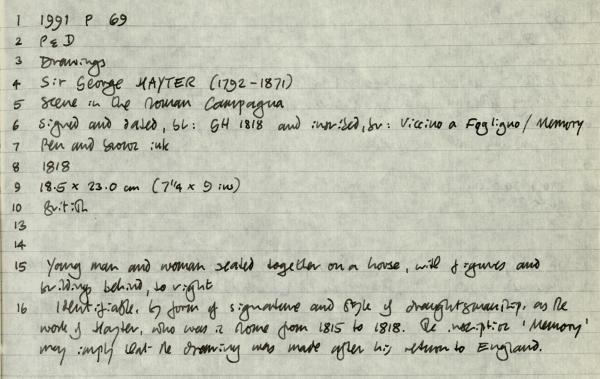 1 1991 P 69
2 P & D
3 Drawings
4 Sir George HAYTER (1792-1871)
5 Scene in the Roman Campagna
6 Signed and dated, bl: GH 1818 and inscribed, br: Viccino a Fogligno / Memory
7 Pen and brown ink
8 1818
9 18.5 x 23.0 cm (7 1/4 x 9 ins)
10 British
13
14
15 Young man and woman seated together on a horse, with figures and
buildings behind, to right
16 Identifiable, by form of signature and style of draughtsmanship, as the
work of Hayter, who was in Rome from 1815 to 1818. The inscription 'Memory'
may imply that the drawing was made after his return to England.